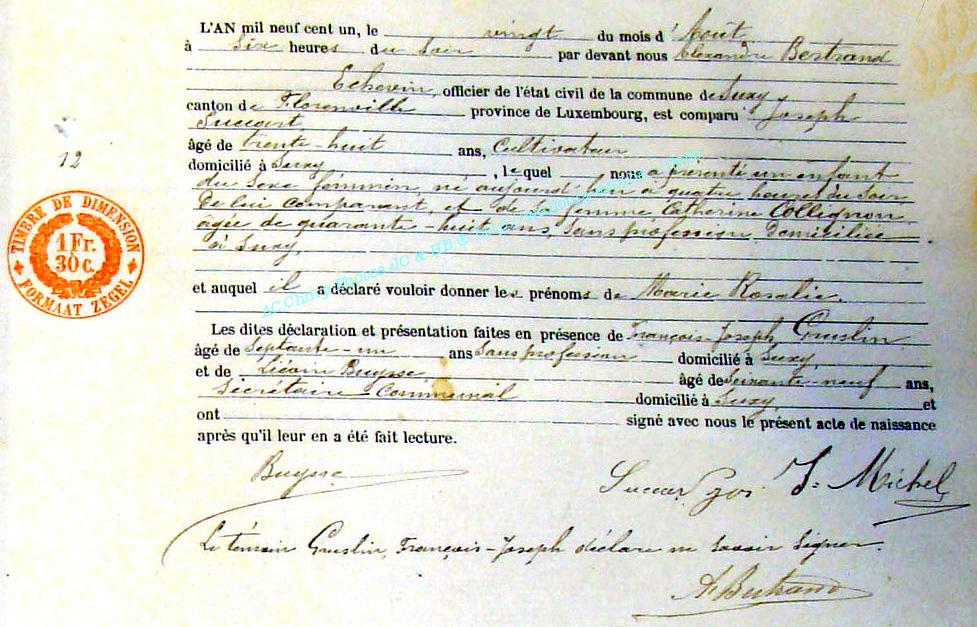 L'AN mil neuf cent un, le vingt du mois d'Août
à Six heures du Soir par devant nous Alexandre Bertrand
Echevin, officier de l'état civil de la commune de Suxy
canton de Florenville province de Luxembourg, est comparu Joseph
Succart
âgé de trente-huit ans, Cultivateur
domicilié à Suxy, lequel nous a présenté un enfant
du sexe féminin, né aujourd'hui à quatre heures du Soir
De lui comparant, et de Sa femme Catherine Collignon,
agée de quarante-huit ans, Sans profession, Domiciliée
à Suxy,
et auquel il a déclaré vouloir donner les prénoms de Marie Rosalie.
Les dites déclaration et présentation faites en présence de François-Joseph Gruslin
âgé de Septante-un ans Sans profession domicilié à Suxy,
et de Buysse, âgé de Soixante-neuf ans,
Secrétaire Communal domicilié à Suxy, et
ont signé avec nous le présent acte de naissance
après qu'il leur en a été fait lecture.
12
TIMBRE DE DIMENSION
1 Fr.
30 c.
FORMAAT ZEGEL
AC Chiny Photos JC & HB
Buysse
Succar Jos. J. Michel
Le témoin Gruslin, François-Joseph déclare ne savoir Signer.
A Bertrand